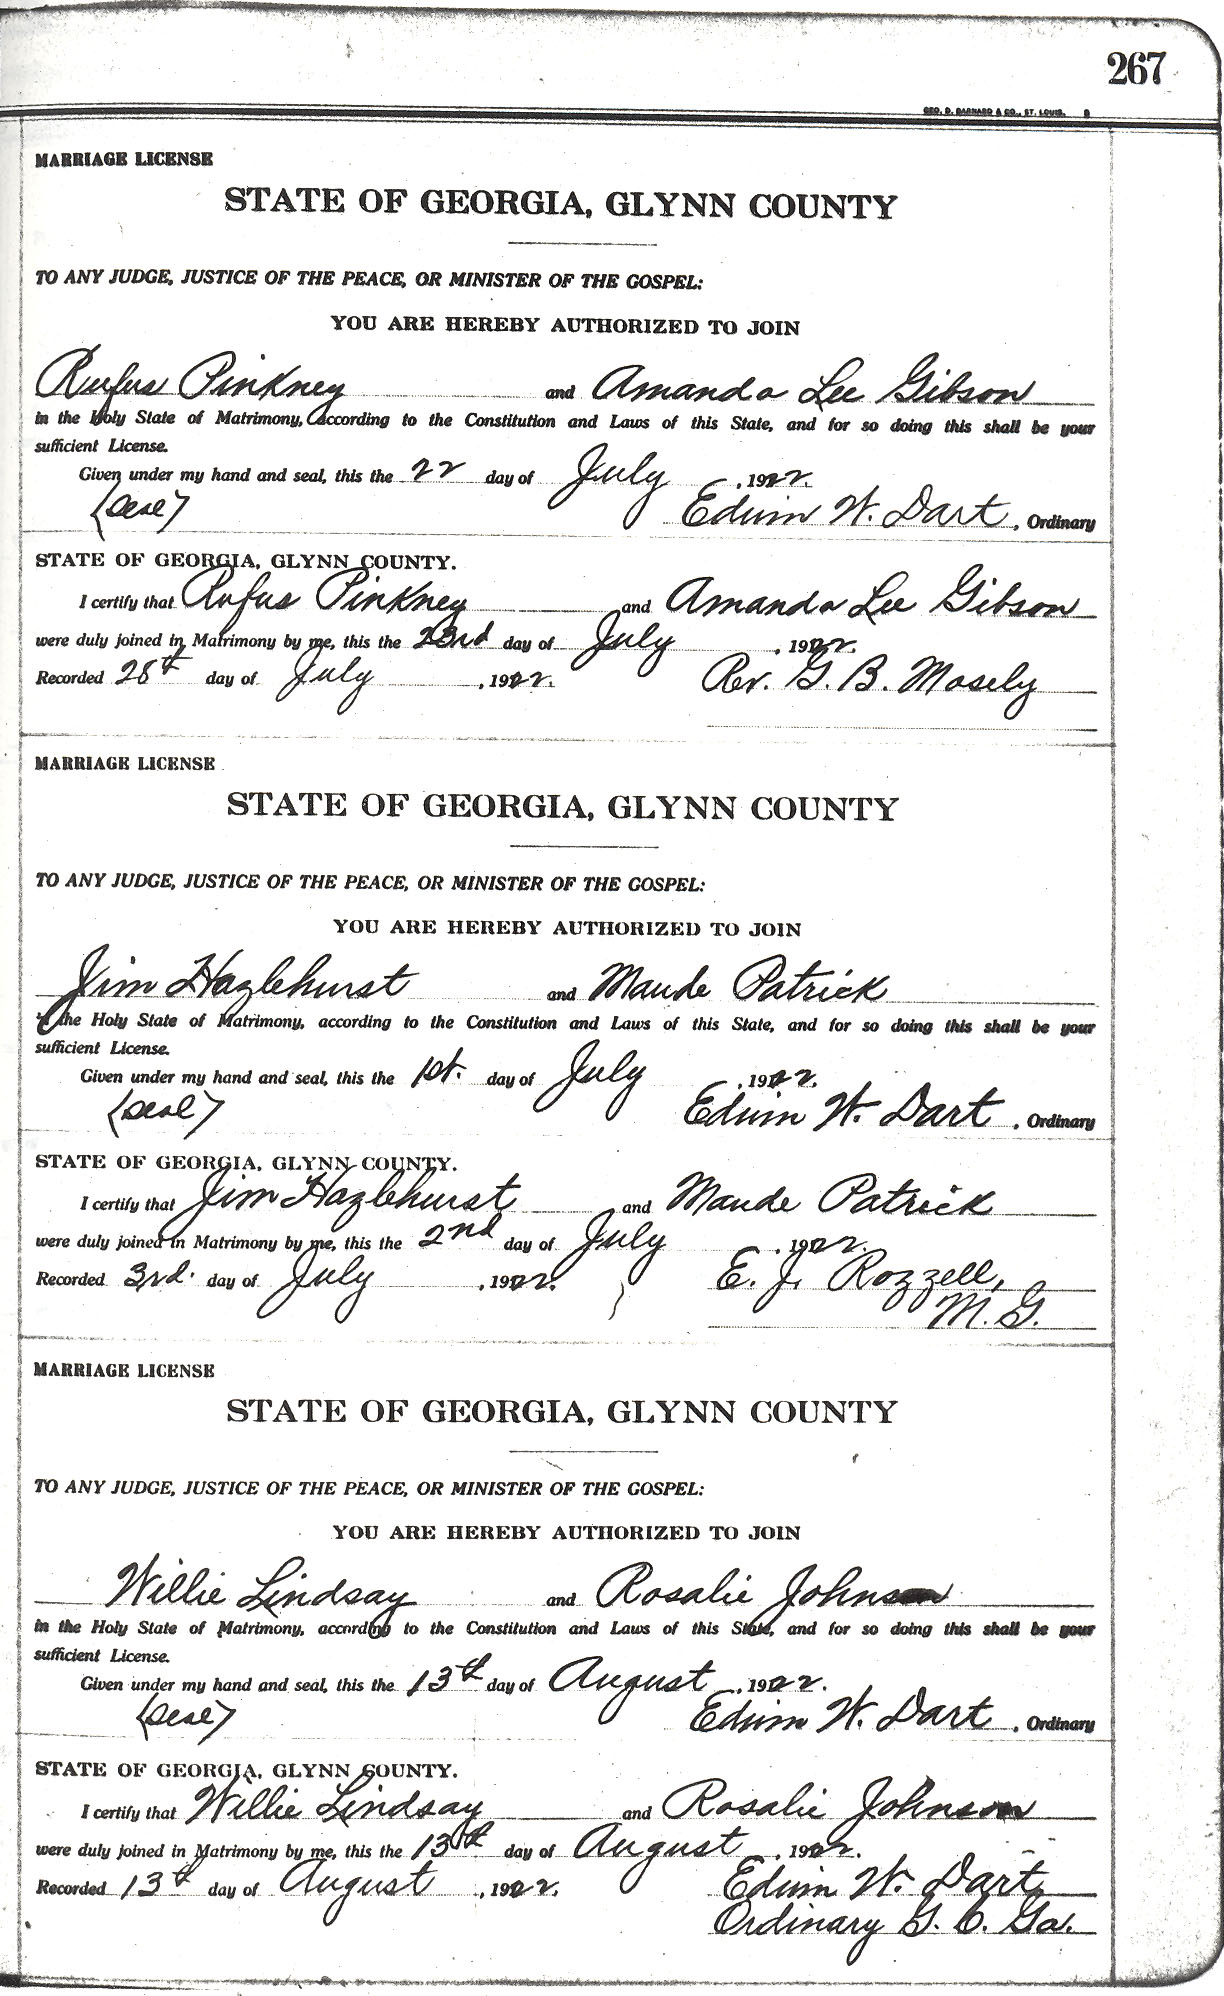 267
GEO. D. BARNARD & CO., ST. LOUIS. B
MARRIAGE LICENSE
STATE OF GEORGIA, GLYNN COUNTY
TO ANY JUDGE, JUSTICE OF THE PEACE, OR MINISTER OF THE GOSPEL:
YOU ARE HEREBY AUTHORIZED TO JOIN
Rufus Pinkney and Amanda Lee Gibson
in the Holy State of Matrimony, according to the Constitution and Laws of this State, and for so doing this shall be your
sufficient License.
Given under my hand and seal, this the 22 day of July, 1922.
(seal) Edwin W. Dart, Ordinary
STATE OF GEORGIA, GLYNN COUNTY.
I certify that Rufus Pinkney and Amanda Lee Gibson
were duly joined in Matrimony by me, this the 23rd day of July, 1922.
Recorded 28th day of July, 1922. Rev. G. B. Mosely
MARRIAGE LICENSE
STATE OF GEORGIA, GLYNN COUNTY
TO ANY JUDGE, JUSTICE OF THE PEACE, OR MINISTER OF THE GOSPEL:
YOU ARE HEREBY AUTHORIZED TO JOIN
Jim Hazlehurst and Maude Patrick
in the Holy State of Matrimony, according to the Constitution and Laws of this State, and for so doing this shall be your
sufficient License.
Given under my hand and seal, this the 1st. day of July, 1922.
(seal) Edwin W. Dart, Ordinary
STATE OF GEORGIA, GLYNN COUNTY.
I certify that Jim Hazlehurst and Maude Patrick
were duly joined in Matrimony by me, this the 2nd day of July, 1922.
Recorded 3rd. day of July, 1922. E. J. Rozzell,
M. G.
MARRIAGE LICENSE
STATE OF GEORGIA, GLYNN COUNTY
TO ANY JUDGE, JUSTICE OF THE PEACE, OR MINISTER OF THE GOSPEL:
YOU ARE HEREBY AUTHORIZED TO JOIN
Willie Lindsay and Rosalie Johnson
in the Holy State of Matrimony, according to the Constitution and Laws of this State, and for so doing this shall be your
sufficient License.
Given under my hand and seal, this the 13th day of August, 1922.
(seal) Edwin W. Dart, Ordinary
STATE OF GEORGIA, GLYNN COUNTY.
I certify that Willie Lindsay and Rosalie Johnson
were duly joined in Matrimony by me, this the 13th day of August, 1922.
Recorded 13th day of August, 1922. Edwin W. Dart
Ordinary G. C. Ga.